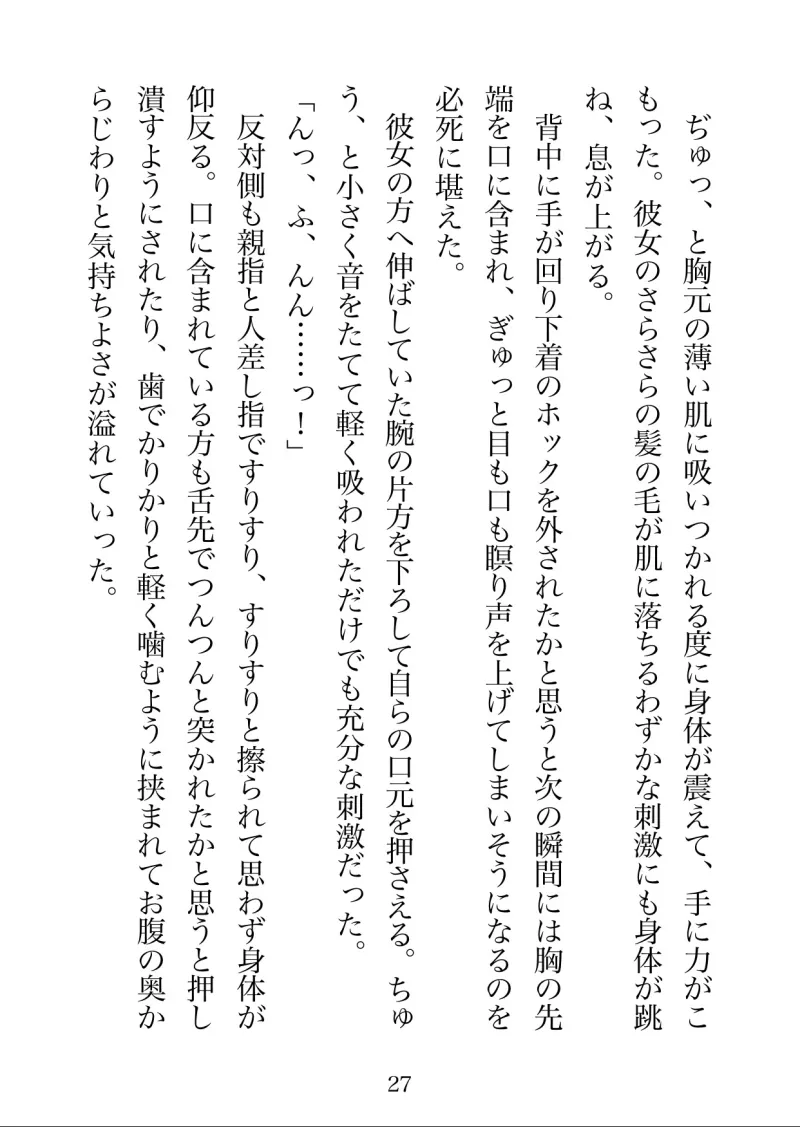 ぢゅっ、と胸元の薄い肌に吸いつかれる度に身体が震えて、手に力がこ
もった。彼女のさらさらの髪の毛が肌に落ちるわずかな刺激にも身体が跳
ね、息が上がる。
　背中に手が回り下着のホックを外されたかと思うと次の瞬間には胸の先
端を口に含まれ、ぎゅっと目も口も瞑り声を上げてしまいそうになるのを
必死に堪えた。
　彼女の方へ伸ばしていた腕の片方を下ろして自らの口元を押さえる。ちゅ
う、と小さく音をたてて軽く吸われただけでも充分な刺激だった。
「んっ、ふ、んん……っ！」
　反対側も親指と人差し指ですりすり、すりすりと擦られて思わず身体が
仰反る。口に含まれている方も舌先でつんつんと突かれたかと思うと押し
潰すようにされたり、歯でかりかりと軽く噛むように挟まれてお腹の奥か
らじわりと気持ちよさが溢れていった。
27